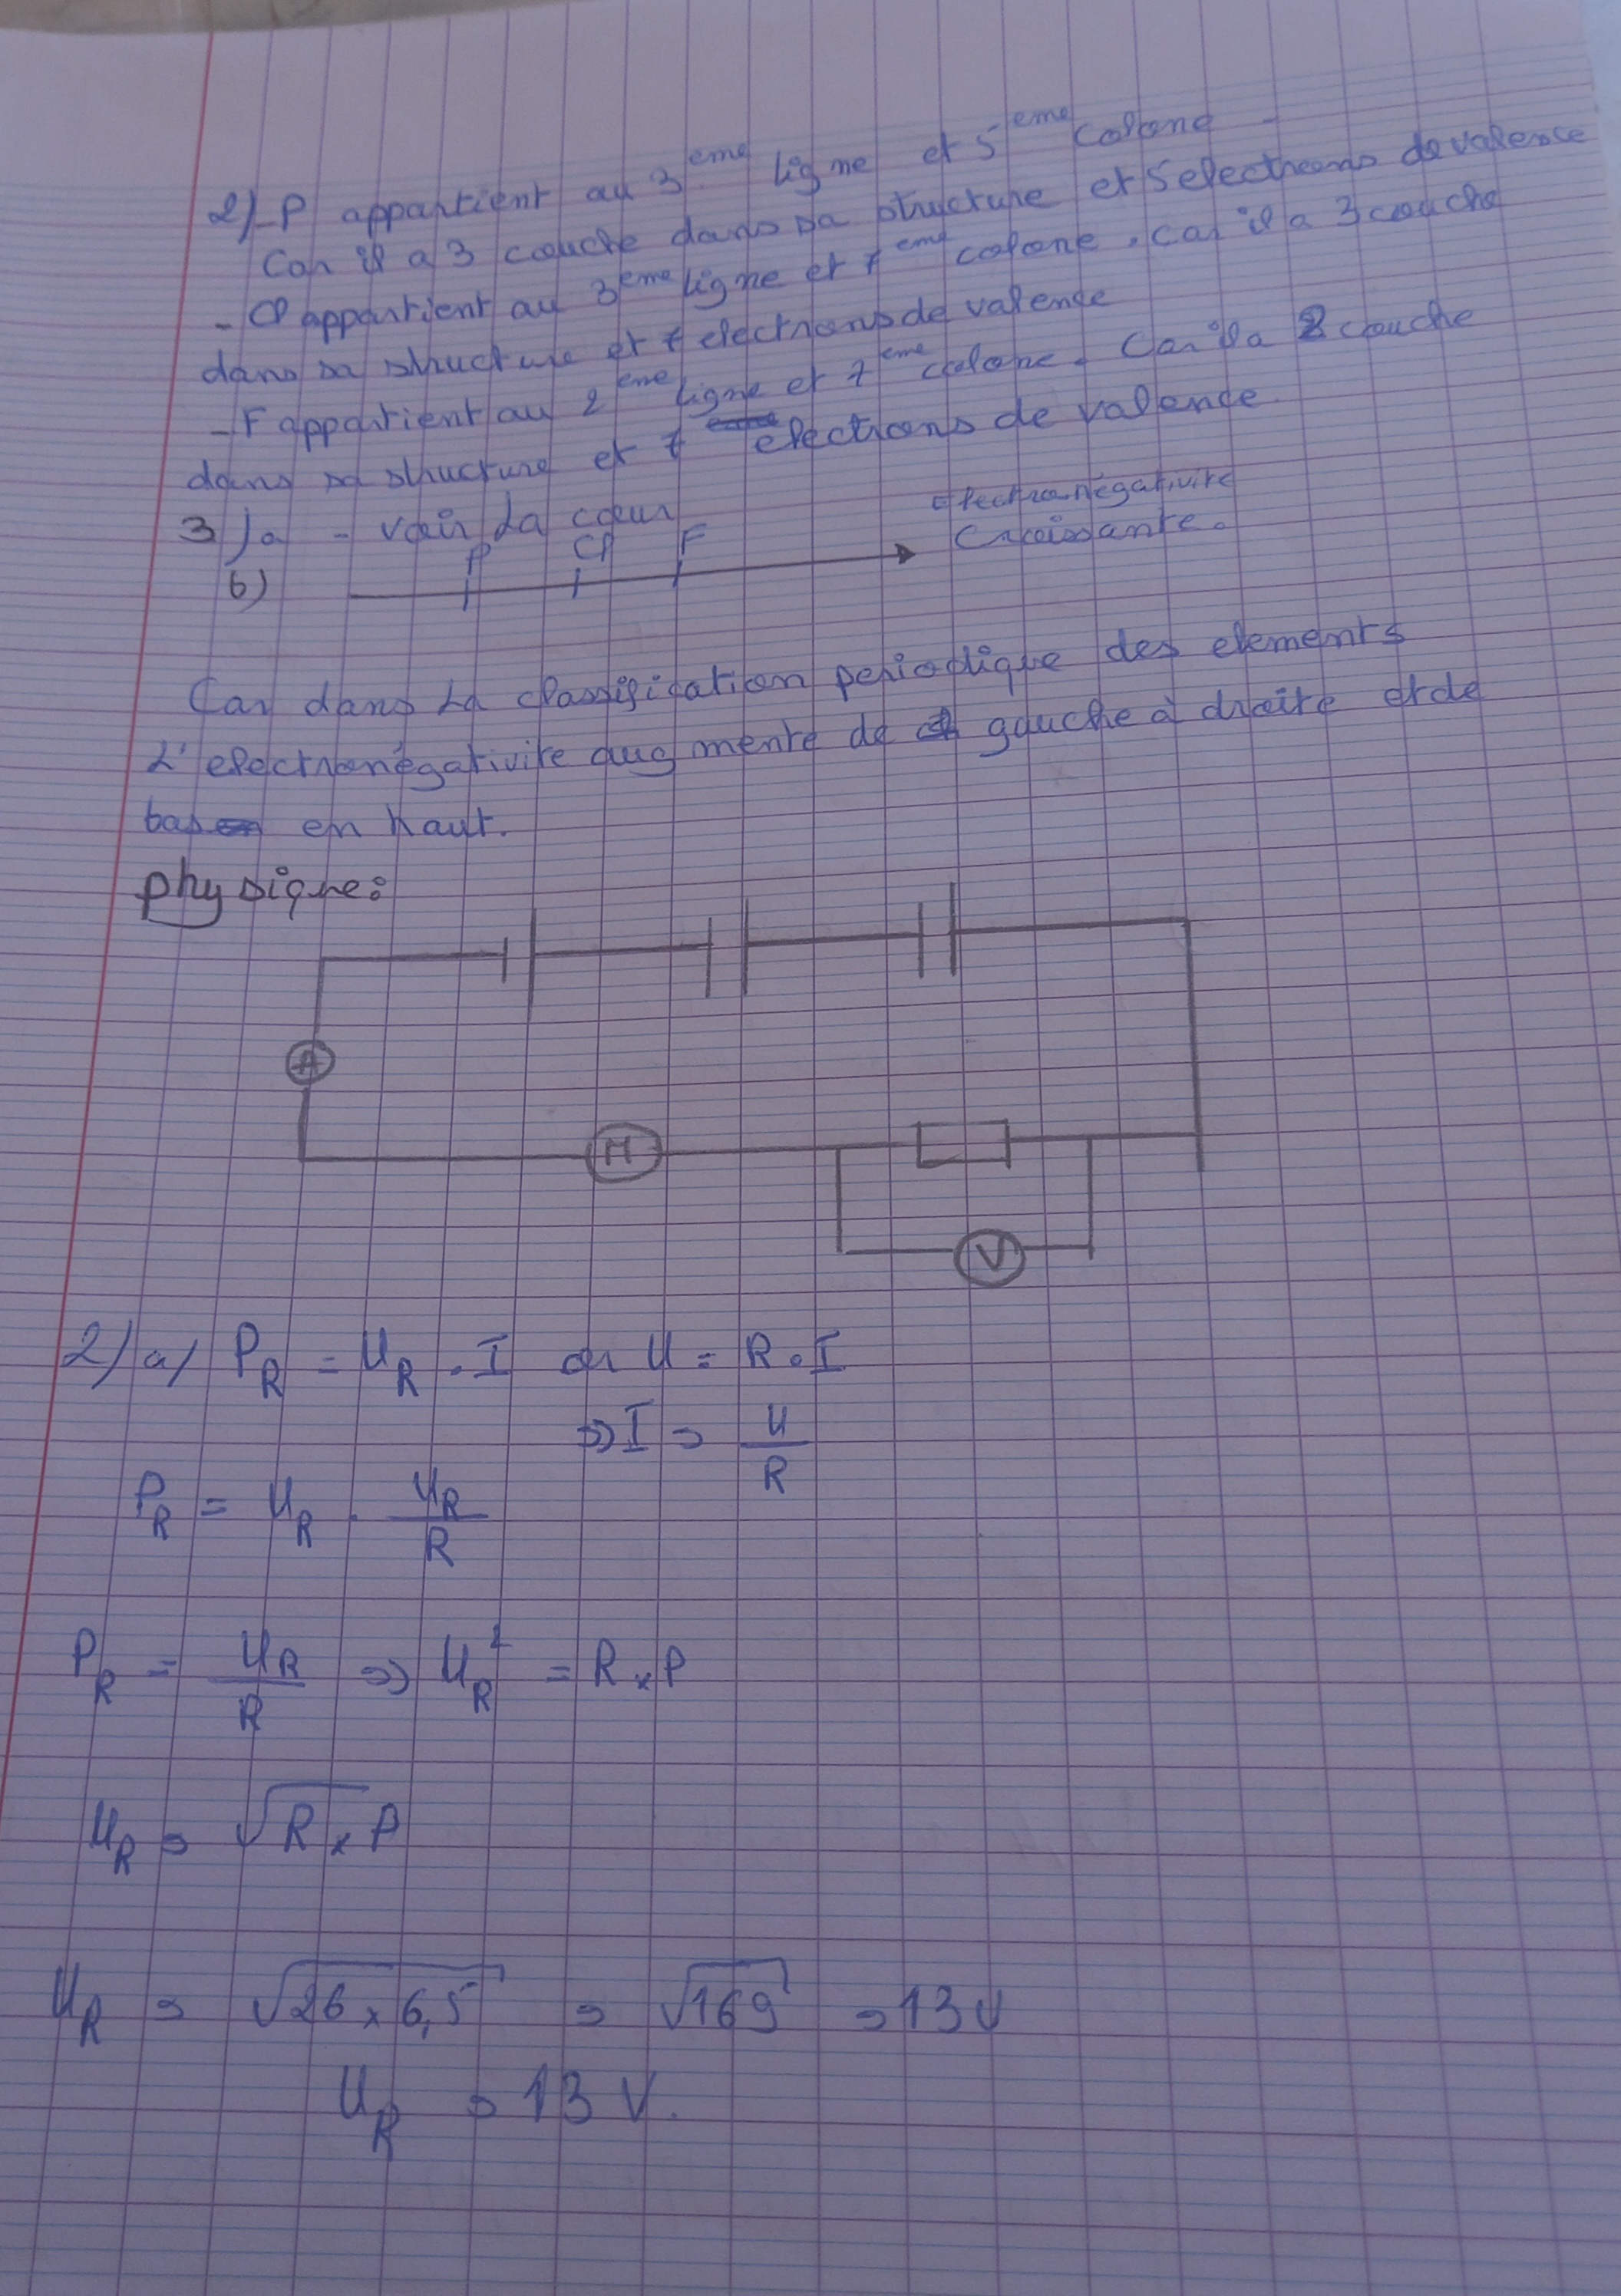 2)-P appartient au 3eme ligne et 5eme colone -
Car il a 3 couche dans sa structure et 5 electrons de valence
- Cl appartient au 3eme ligne et 7eme colone. car il a 3 couche
dans sa structure et 7 electrons de valence
- F appartient au 2eme ligne et 7eme colone. Car il a 2 couche
dans sa structure et 7 electrons de valence
3) a - voir La cour
Electronégativité
Croissante.
b) P Cl F
Car dans La classification periodique des elements
L'electronégativite augmente de gauche à droite et de
bas en haut.
physique:
A
M
V
2) a) P_R = U_R . I or U = R . I
⇒ I = U/R
P_R = U_R . U_R/R
P_R = U_R/R ⇒ U_R² = R × P
U_R = √(R × P)
U_R = √(26 × 6,5) = √169 = 13 V
U_R = 13 V.